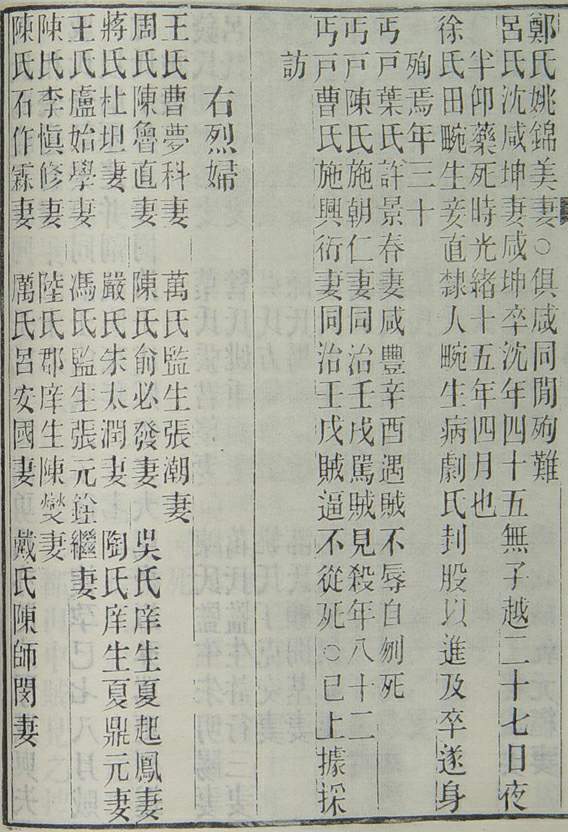 鄭氏姚錦美妻○俱咸同閒殉難
呂氏沈咸坤妻咸坤卒沈年四十五無子越二十七日夜
半仰藥死時光緒十五年四月也
徐氏田畹生妾直隸人畹生病劇氏刲股以進及卒遂身
殉焉年三十
丐戸葉氏許景春妻咸豐辛酉遇賊不辱自刎死
丐戸陳氏施朝仁妻同治壬戌罵賊見殺年八十二
丐戸曹氏施興衕妻同治壬戌賊逼不從死○已上據採
訪
右烈婦
王氏曹夢科妻 萬氏監生張潮妻
周氏陳魯直妻 陳氏俞必發妻 吳氏庠生夏起鳳妻
蔣氏杜坦妻 嚴氏朱太潤妻 陶氏庠生夏鼎元妻
王氏盧始學妻 馮氏監生張元銓繼妻
陳氏李愼修妻 陸氏郡庠生陳燮妻
陳氏石作霖妻 厲氏呂安國妻 戴氏陳師閔妻